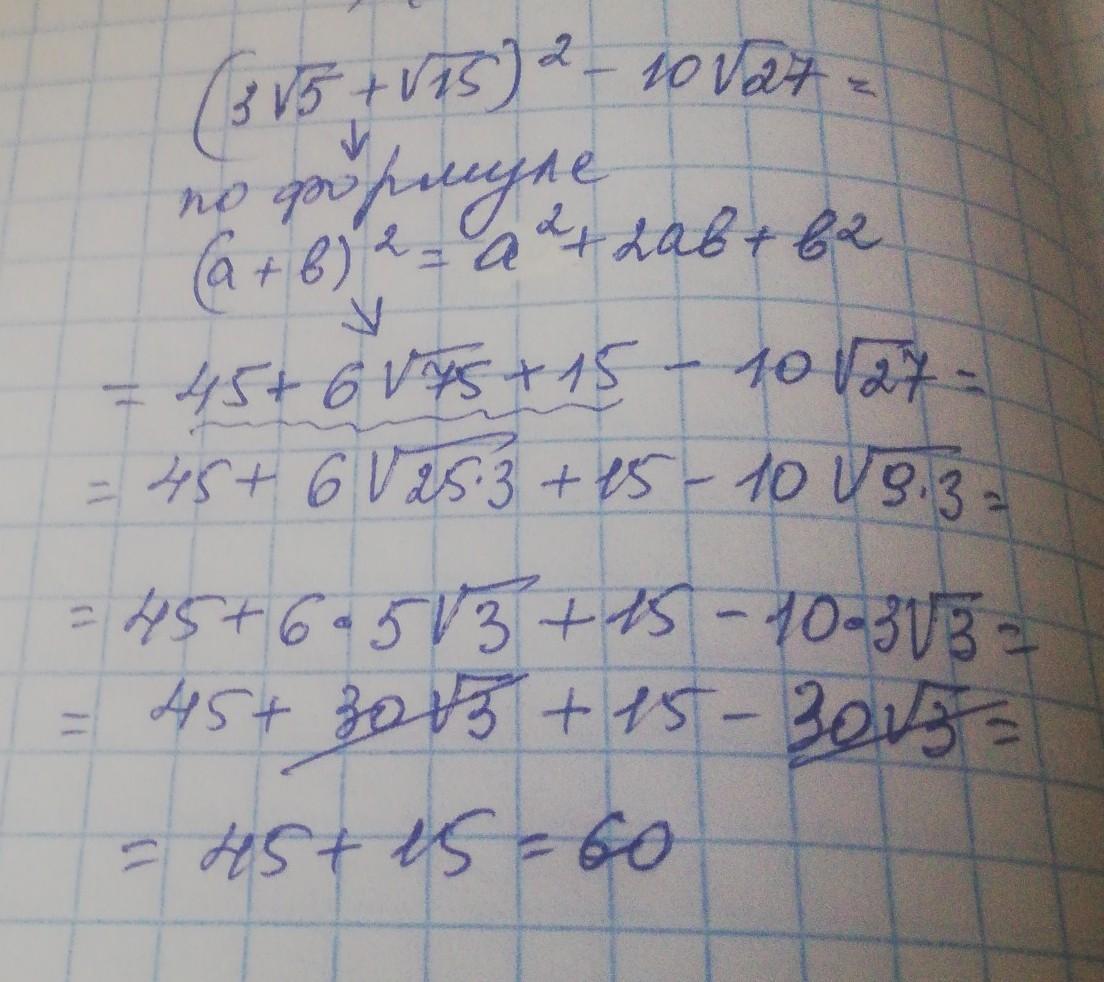 (3√5 + √15)² - 10√27 =
по формуле
(а + в)² = а² + 2ав + в²
= 45 + 6√75 + 15 - 10√27 =
= 45 + 6√25·3 + 15 - 10√9·3 =
= 45 + 6·5√3 + 15 - 10·3√3 =
= 45 + 30√3 + 15 - 30√3 =
= 45 + 15 = 60